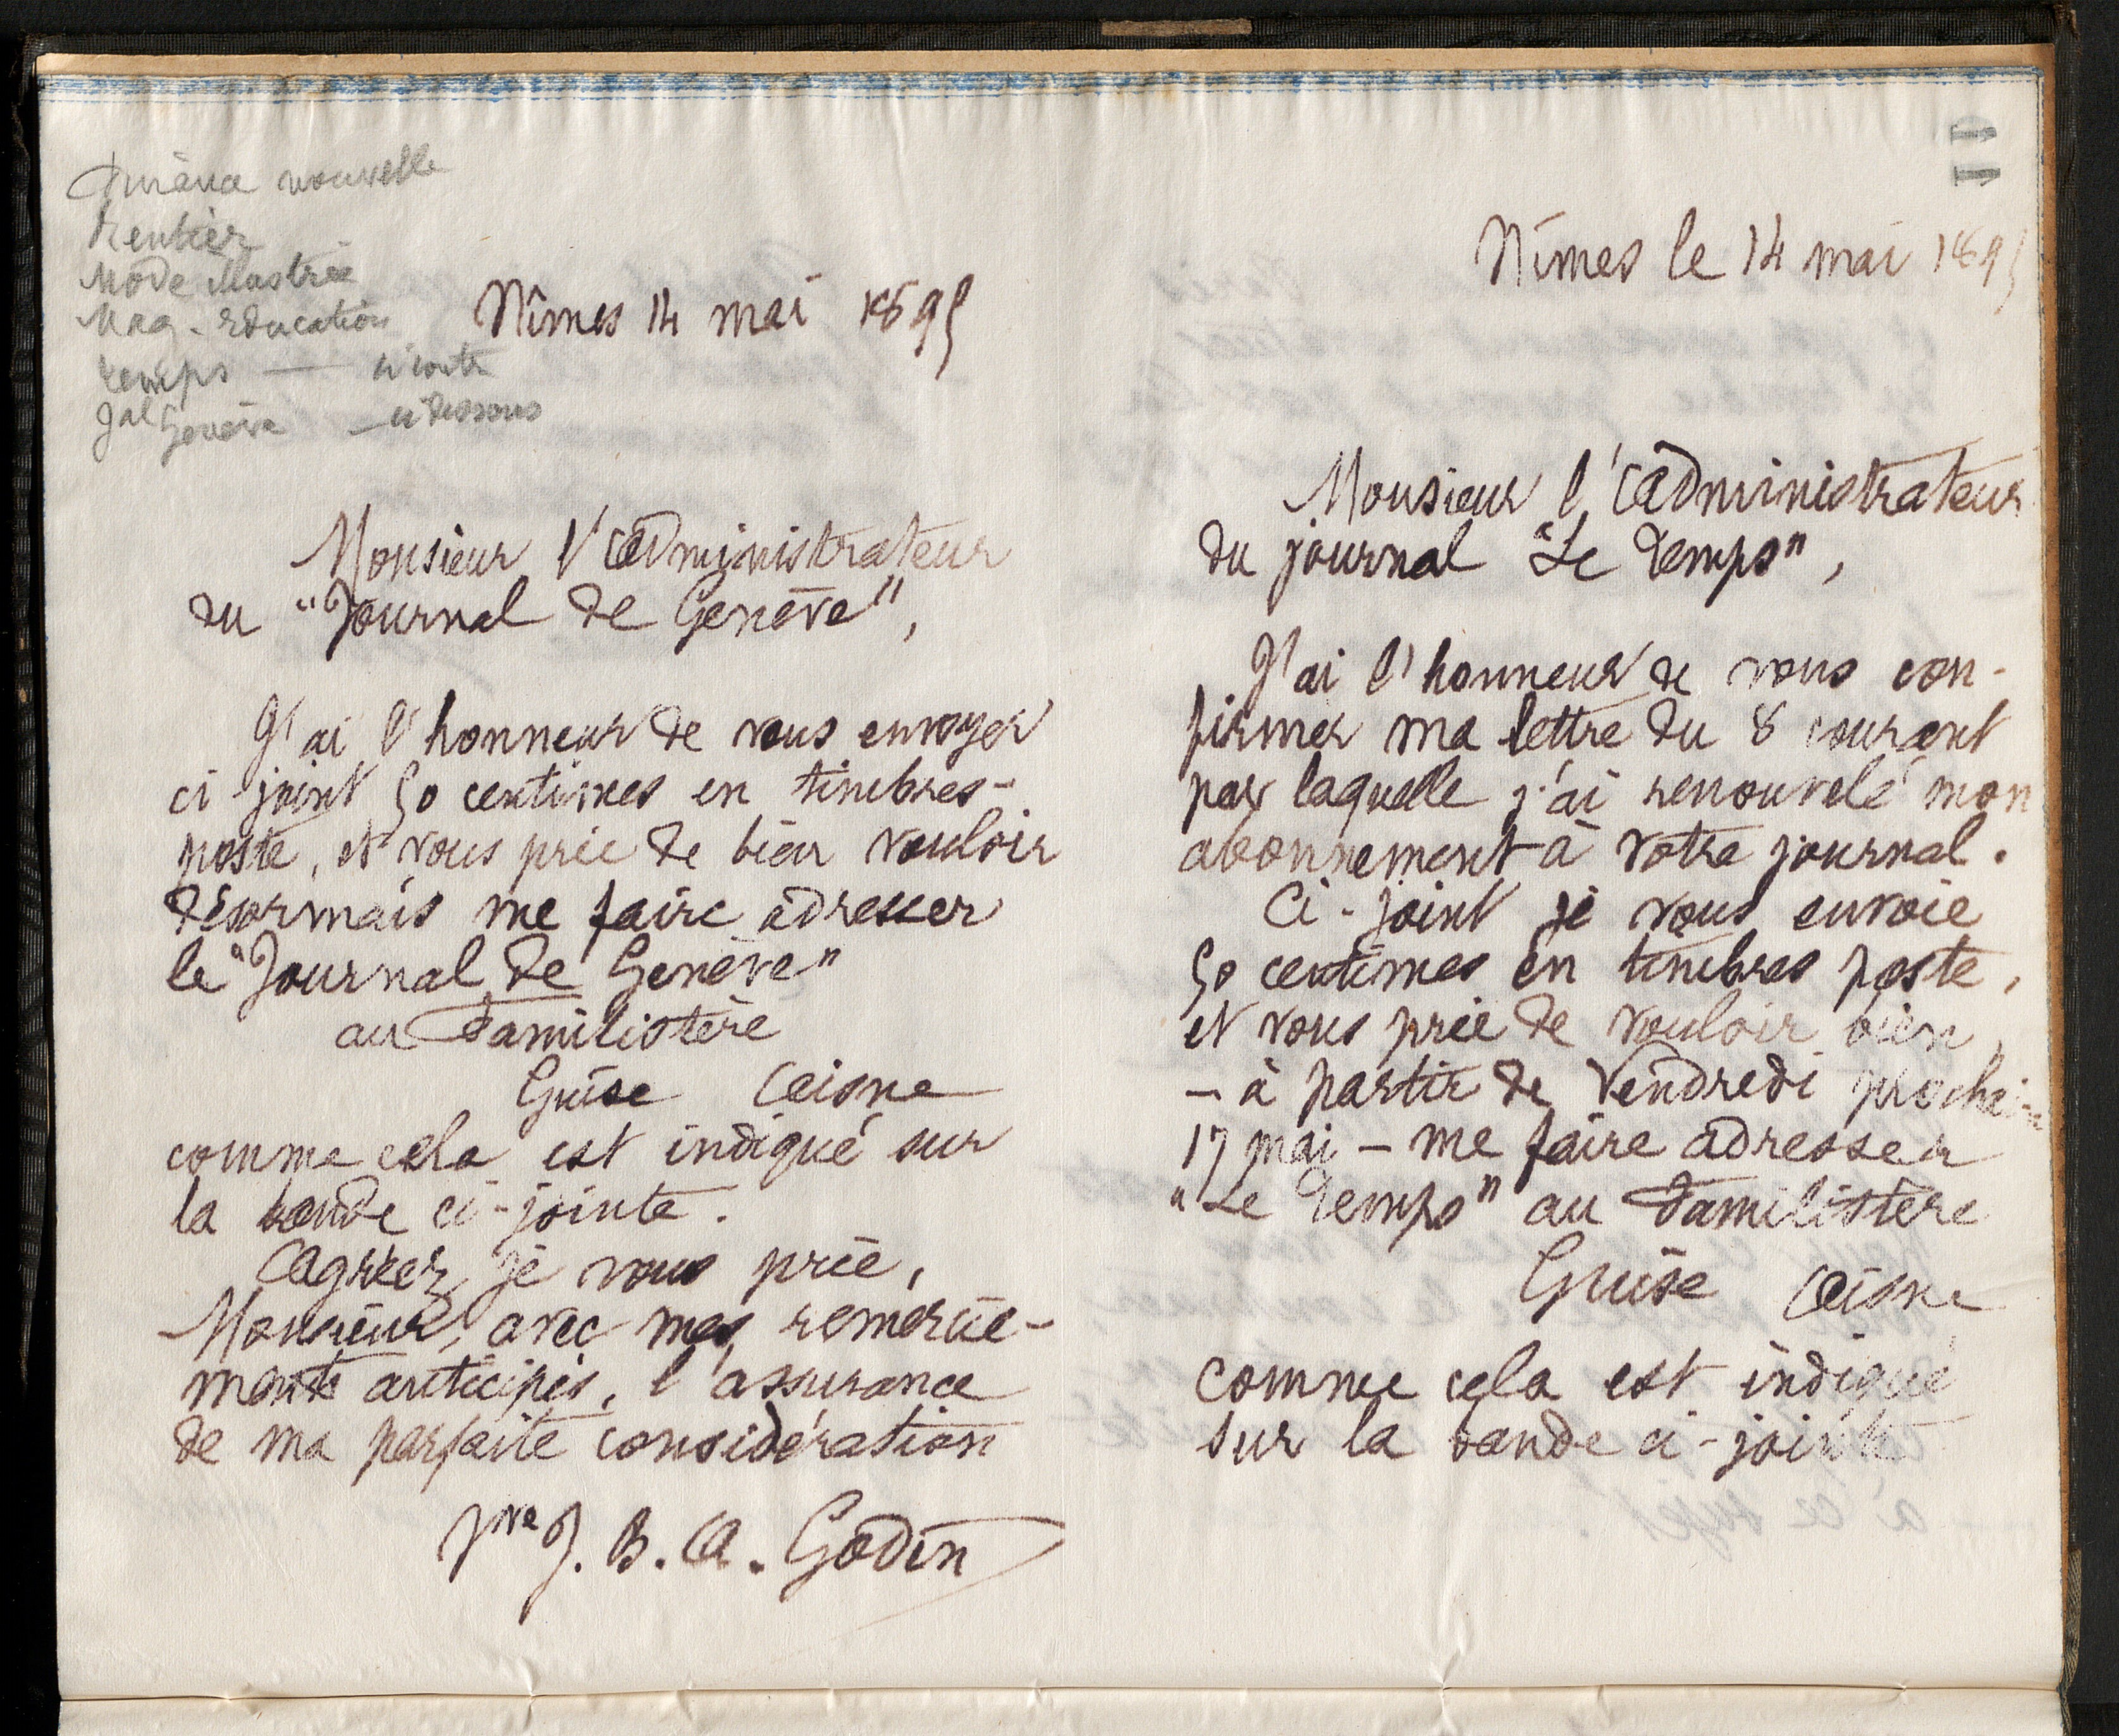 nouvelle
Rentier
Mode illustrée
Mag. Education
Temps — ci contre
Jal Genève — ci dessous
Nîmes 14 mai 1895
Monsieur l'Administrateur
du "Journal de Genève",
J'ai l'honneur de vous envoyer
ci joint 50 centimes en timbres-
poste, et vous prie de bien vouloir
désormais me faire adresser
le "Journal de Genève"
au Familistère
Guise Aisne
comme cela est indiqué sur
la bande ci-jointe.
Agréez, je vous prie,
Monsieur, avec mes remercie-
ments anticipés, l'assurance
de ma parfaite considération
Vve J. B. A. Godin
Nîmes le 14 mai 1895
Monsieur l'Administrateur
du journal "Le Temps",
J'ai l'honneur de vous con-
firmer ma lettre du 8 courant
par laquelle j'ai renouvelé mon
abonnement à votre journal.
Ci-joint je vous envoie
50 centimes en timbres poste,
et vous prie de vouloir bien,
– à partir de Vendredi prochain
17 mai – me faire adresser
"Le Temps" au Familistère
Guise Aisne
comme cela est indiqué
sur la bande ci-jointe